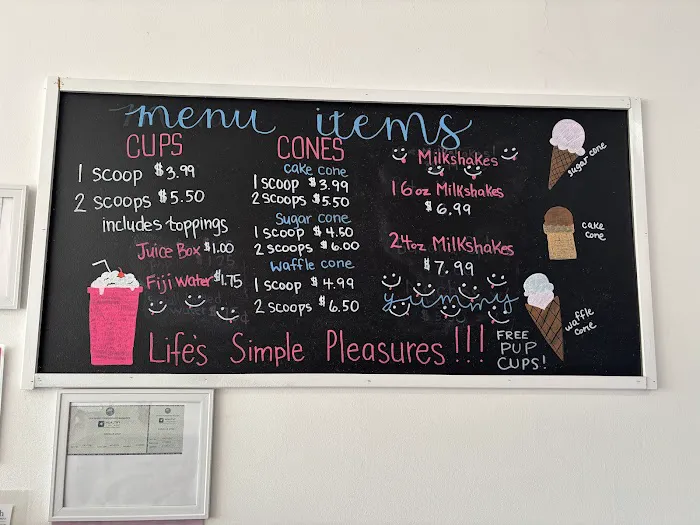 menu items
CUPS
1 scoop $3.99
2 scoops $5.50
includes toppings
Juice Box $1.00
Fiji Water $1.75
CONES
cake cone
1 scoop $3.99
2 scoops $5.50
Sugar cone
1 scoop $4.50
2 scoops $6.00
Waffle cone
1 scoop $4.99
2 scoops $6.50
Milkshakes
16oz Milkshakes
$6.99
24oz Milkshakes
$7.99
yummy
sugar cone
cake
cone
waffle
cone
Life's Simple Pleasures!!!
FREE
PUP
CUPS!